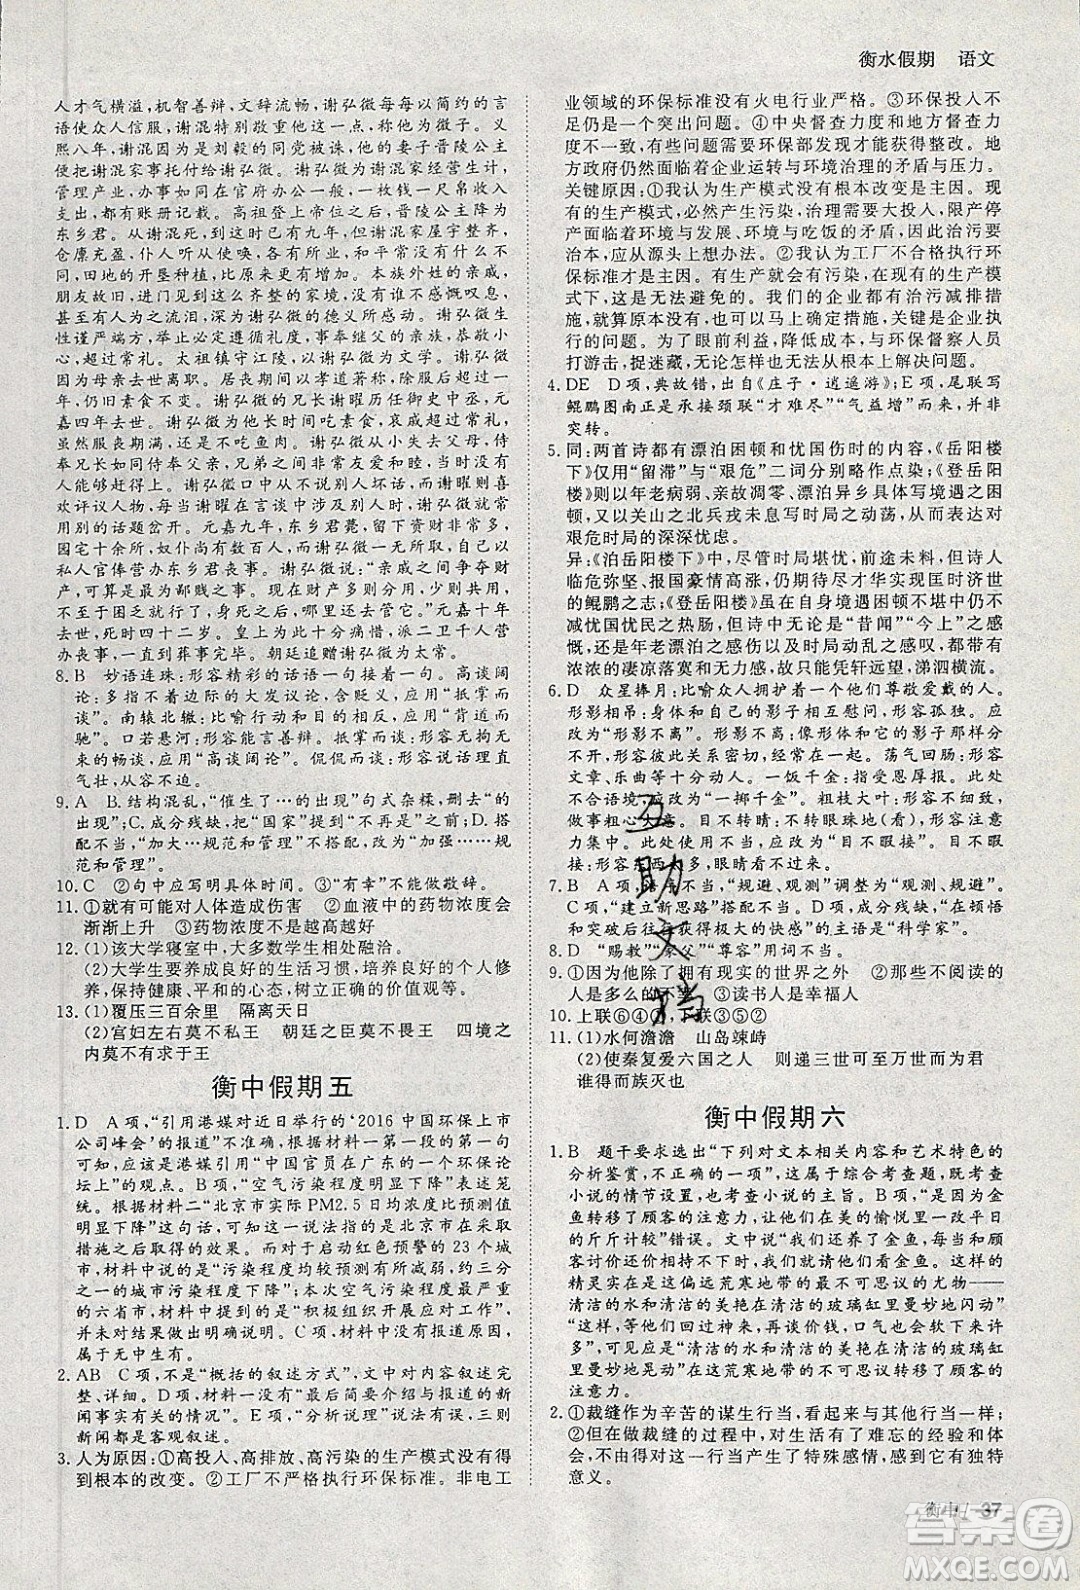 衡水假期　语文
人才气横溢，机智善辩，文辞流畅，谢弘微每每以简约的言
语使众人信服，谢混特别敬重他这一点，称他为微子。义
熙八年，谢混因为是刘毅的同党被诛，他的妻子晋陵公主
便把谢混家事托付给谢弘微。谢弘微为谢混家经营生计，
管理产业，办事如同在官府办公一般，一枚钱一尺帛收入
支出，都有账册记载。高祖登上帝位之后，晋陵公主降为
东乡君。从谢混死，到这时已有九年，但谢混家屋宇整齐，
仓廪充盈，仆人听从使唤，各有业作，和平常没有什么不
同，田地的开垦种植，比原来更有增加。本族外姓的亲戚，
朋友故旧，进门见到这么齐整的家境，没有谁不感慨叹息，
甚至有人为之流泪，深为谢弘微的德义所感动。谢弘微生
性谨严端方，举止必定遵循礼度，事奉继父的亲族，恭敬小
心，超过常礼。太祖镇守江陵，谢弘微为文学。谢弘微因
为母亲去世离职。居丧期间以孝道著称，除服后超过一
年，仍旧素食不变。谢弘微的兄长谢曜历任御史中丞，元
嘉四年去世。谢弘微为他多年不食荤腥，哀戚超过常礼，
虽然服丧期满，还是不吃鱼肉。谢弘微从小失去父母，侍
奉兄长如同侍奉父亲，兄弟之间非常友爱，当代没有谁能
赶得上。谢弘微口中从不说别人坏话，而谢曜则喜
欢评议人物，每当谢曜在言谈中涉及别人，谢弘微就常
用别的话题岔开。元嘉九年，东乡君薨，留下资财非常多，
园宅十余所，奴仆尚有数百人，谢弘微一无所取，自己
以私人官俸营办东乡君丧事。谢弘微说：“亲戚之间争夺财
产，可算是最为鄙贱之事。现在财产多则分用，少则共用，
不至于困乏就行了，身死之后，哪里还去管它。”元嘉十年
去世，死时四十二岁。皇上十分痛惜，派二卫千人营
办丧事，一直到丧事完毕。朝廷追赠谢弘微为太常。
8. B　妙语连珠：形容精彩的话语一句接着一句。高谈阔
论：多指不着边际的大发议论，含有贬义，应用“抵掌而
谈”。南辕北辙：比喻行动和目的相反，应用“背道而
驰”。口若悬河：形容能言善辩。抵掌而谈：形容无拘无
束的畅谈，应用“高谈阔论”。侃侃而谈：形容说话理直
气壮，从容不迫。
9. A　B.结构混乱，“催生了…的出现”句式杂糅，删去“的
出现”；C.成分残缺，把“国家”提到“不再是”之前；D.搭
配不当，“加大…规范和管理”搭配不当，应为“加强…规
范和管理”。
10. C　②句中应写明具体时间。③“有幸”不能做敬辞。
11. ①就有可能对人体造成伤害　②血液中的药物浓度会
渐渐上升　③药物浓度不是越高越好
12. (1)该大学寝室中，大多数学生相处融洽。
(2)大学生要养成良好的生活习惯，培养良好的个人修
养，保持健康、平和的心态，树立正确的价值观等。
13. (1)覆压三百余里　隔离天日
(2)宫妇左右莫不私王　朝廷之臣莫不畏王　四境之
内莫不有求于王
衡中假期五
1. D　A项，“引用港媒对近日举行的‘2016中国环保上市
公司峰会’的报道”不准确，根据材料一第一段的第一句
可知，应该是港媒引用“中国官员在广东的一个环保论
坛上”的观点。B项，“空气污染程度明显下降”说法笼
统。根据材料二“北京市实际PM2.5日均浓度比预测值
明显下降”这句话，可知这一说法指的是北京市在采取
相关措施之后取得的效果。而对于启动红色预警的23个城
市，材料中说的是“污染程度均有所减弱，至少三分
之一的城市污染程度下降”；本次空气污染程度最严重
的六省市，材料中提到的是“积极组织开展应对工作”，但
并未对效果做出明确说明。C项，材料中没有报道原因，
属于无中生有。
2. AB　C项，不是“概括的叙述方式”，文中对内容叙述完
整、详细。D项，材料一没有“最后简要介绍与最新的新
闻事实有关的情况”。E项，“分析说理”说法有误，三则
新闻都是客观叙述。
3. 人为原因：①高投入、高排放、高污染的生产模式没有得
到根本的改变。②工厂不严格执行环保标准。非电工
业领域的环保标准没有火电行业严格。③环保投入不
足仍是一个突出问题。④中央督查力度和地方督查力
度不一致，有些问题需要环保部发现才能得以整改。地
方政府仍然面临着企业运转与环境治理的矛盾与压力。
关键原因：①我认为生产模式没有根本改变是主因。现
有的生产模式，必然产生污染，治理需要大投入，限产停
产面临环境与发展、环境与吃饭的矛盾，应该通过改革供
给单位，从源头上解决。②我认为工厂不合格执行环
保标准才是主因。有生产就会有污染，在现有的生产模
式下，这是无法避免的。我们的企业都有治污减排措
施，就算原本没有，也可以马上确定措施，关键是有效执
行的问题。为了眼前利益，降低成本，与环保督察人员
打游击，捉迷藏，无论怎样也无法从根本上解决问题。
4. DE　D项，典故错，出自《庄子·逍遥游》；E项，尾联写
鲲鹏图南正是承接颈联“才难尽”“气益增”而来，并非
突转。
5. 同：两首诗都有漂泊困顿和忧国伤时的内容，《泊岳阳楼
下》仅用“留滞”与“艰危”二词分别略作点染；《登岳阳
楼》则以年老病弱、亲故凋零、漂泊异乡具体写境遇之困
顿，又以关山之北兵戎未息写时局之动荡，表达对
艰危时局的深深忧虑。
异：《泊岳阳楼下》中，尽管时局堪忧，前途未料，但诗人
临危弥坚、报国豪情高涨，仍期待尽才华实现匡时济世
的鲲鹏之志；《登岳阳楼》虽在自身境遇困顿不堪中仍不
减忧国忧民之热肠，但诗中无论是“昔闻”“今上”的感
慨，还是年老漂泊之感触以及时局动乱之感叹，都带有
浓浓的凄凉落寞和无奈之情，故只能凭轩远望，涕泗横流。
6. D　众星捧月：比喻众人拥护着一个他们尊敬爱戴的人。
形影相吊：身体和自己的影子相互慰问，形容孤独。应
改为“形影不离”。形影不离：像形体和它的影子那样分
不开，形容彼此关系亲密，经常在一起。荡气回肠：形容
文章、乐曲十分动人。一饭千金：比喻厚厚报答。此处
不合语境，应改为“一掷千金”。粗枝大叶：形容不细致，
做事粗心大意。目不转睛：不转动眼珠地（看），形容注意
力集中。此处使用不当，应改为“目不暇接”。目不暇
接：形容东西太多，眼睛看不过来。
7. B　A项，语序不当，“规避、观测”应调整为“观测、规避”。
C项，“建立新思路”搭配不当。D项，成分残缺，“在困顿
和突破后往往获得极大的快感”的主语是“科学家”。
8. D　“赐教”“家父”“尊容”用词不当。
9. ①因为他除了拥有现实的世界之外　②那些不能阅读的
人是多么的不幸　③读书人是幸福人
10. 上联⑥④①，下联⑤③②
11. (1)水何澹澹　山岛竦峙
(2)使秦复爱六国之人　则递三世可至万世而为君
谁得而族灭也
衡中假期六
1. B　题干要求选出“下列对文本相关内容和艺术特色的
分析鉴赏，不正确的一项”，这属于综合考查题，既考查
小说的情节设置，也考查小说的主旨。B项，“是因为金
鱼转移了顾客的注意力，使他们在美的愉悦里一改平日
的斤斤计较”错误。文中写“我们来了金鱼，在此之前，
顾客讨价还价相当厉害，但是，我们就有了金鱼。这些
精灵实在是这偏远荒寒地带的最不可思议的尤物——
清洁的水和清洁的美艳在清洁的玻璃缸里曼妙地闪动”
“女人们一下子给吸引过来，再谈价钱，口气也会软下来许
多”，可见应是“清洁的水和清洁的美艳在清洁的玻璃缸
里曼妙地晃动”在这荒寒地带的美丽转移了顾客的
注意力。
2. ①裁缝作为辛苦的谋生行当，看起来与其他行当一样；
②但在做裁缝的过程中，生活中有了难忘的经历和深刻
的体验，因而对这一行当产生了特殊感情，甚至有了独特
意义。
衡中／37
互助文档
答案圈
MXQE.COM